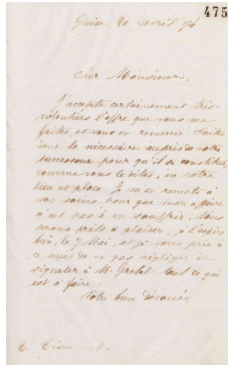 475
Guise 20 avril 76
Cher Monsieur,
J'accepte certainement très
volontiers l'offre que vous me
faites, et vous en remercie. Faites
donc le nécessaire auprès de notre
successeur pour qu'il se constitue,
comme vous le dites, en votre
lieu et place. Je m'en remets à
vos soins, pour que mon affaire
n'ait pas à en souffrir. Nous
serons prêts à plaider, je l'espère
bien, le 7 Mai, et je vous prie à
ce sujet de ne pas négliger de
signaler à M. tout ce qui
est à faire.
Votre bien Dévoué,